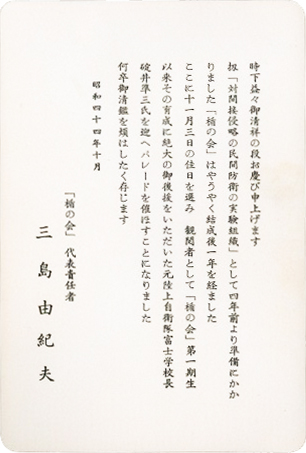 時下益々御清祥の段お慶び申上げます
扨「対間接侵略の民間防衛の実験組織」として四年前より準備にかか
りました「楯の会」はやうやく結成後一年を経ました
ここに十一月三日の佳日を選み 観閲者として「楯の会」第一期生
以来その育成に絶大の御後援をいただいた元陸上自衛隊富士学校長
碇井準三氏を迎へパレードを催すことになりました
何卒御清鑑を煩はしたく存じます
昭和四十四年十月
「楯の会」代表責任者
三島由紀夫